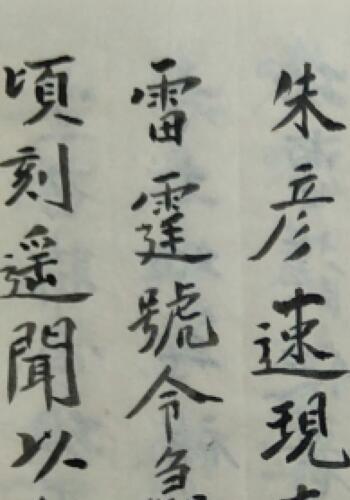 朱彦速現
雷霆號令急
頃刻遥聞以